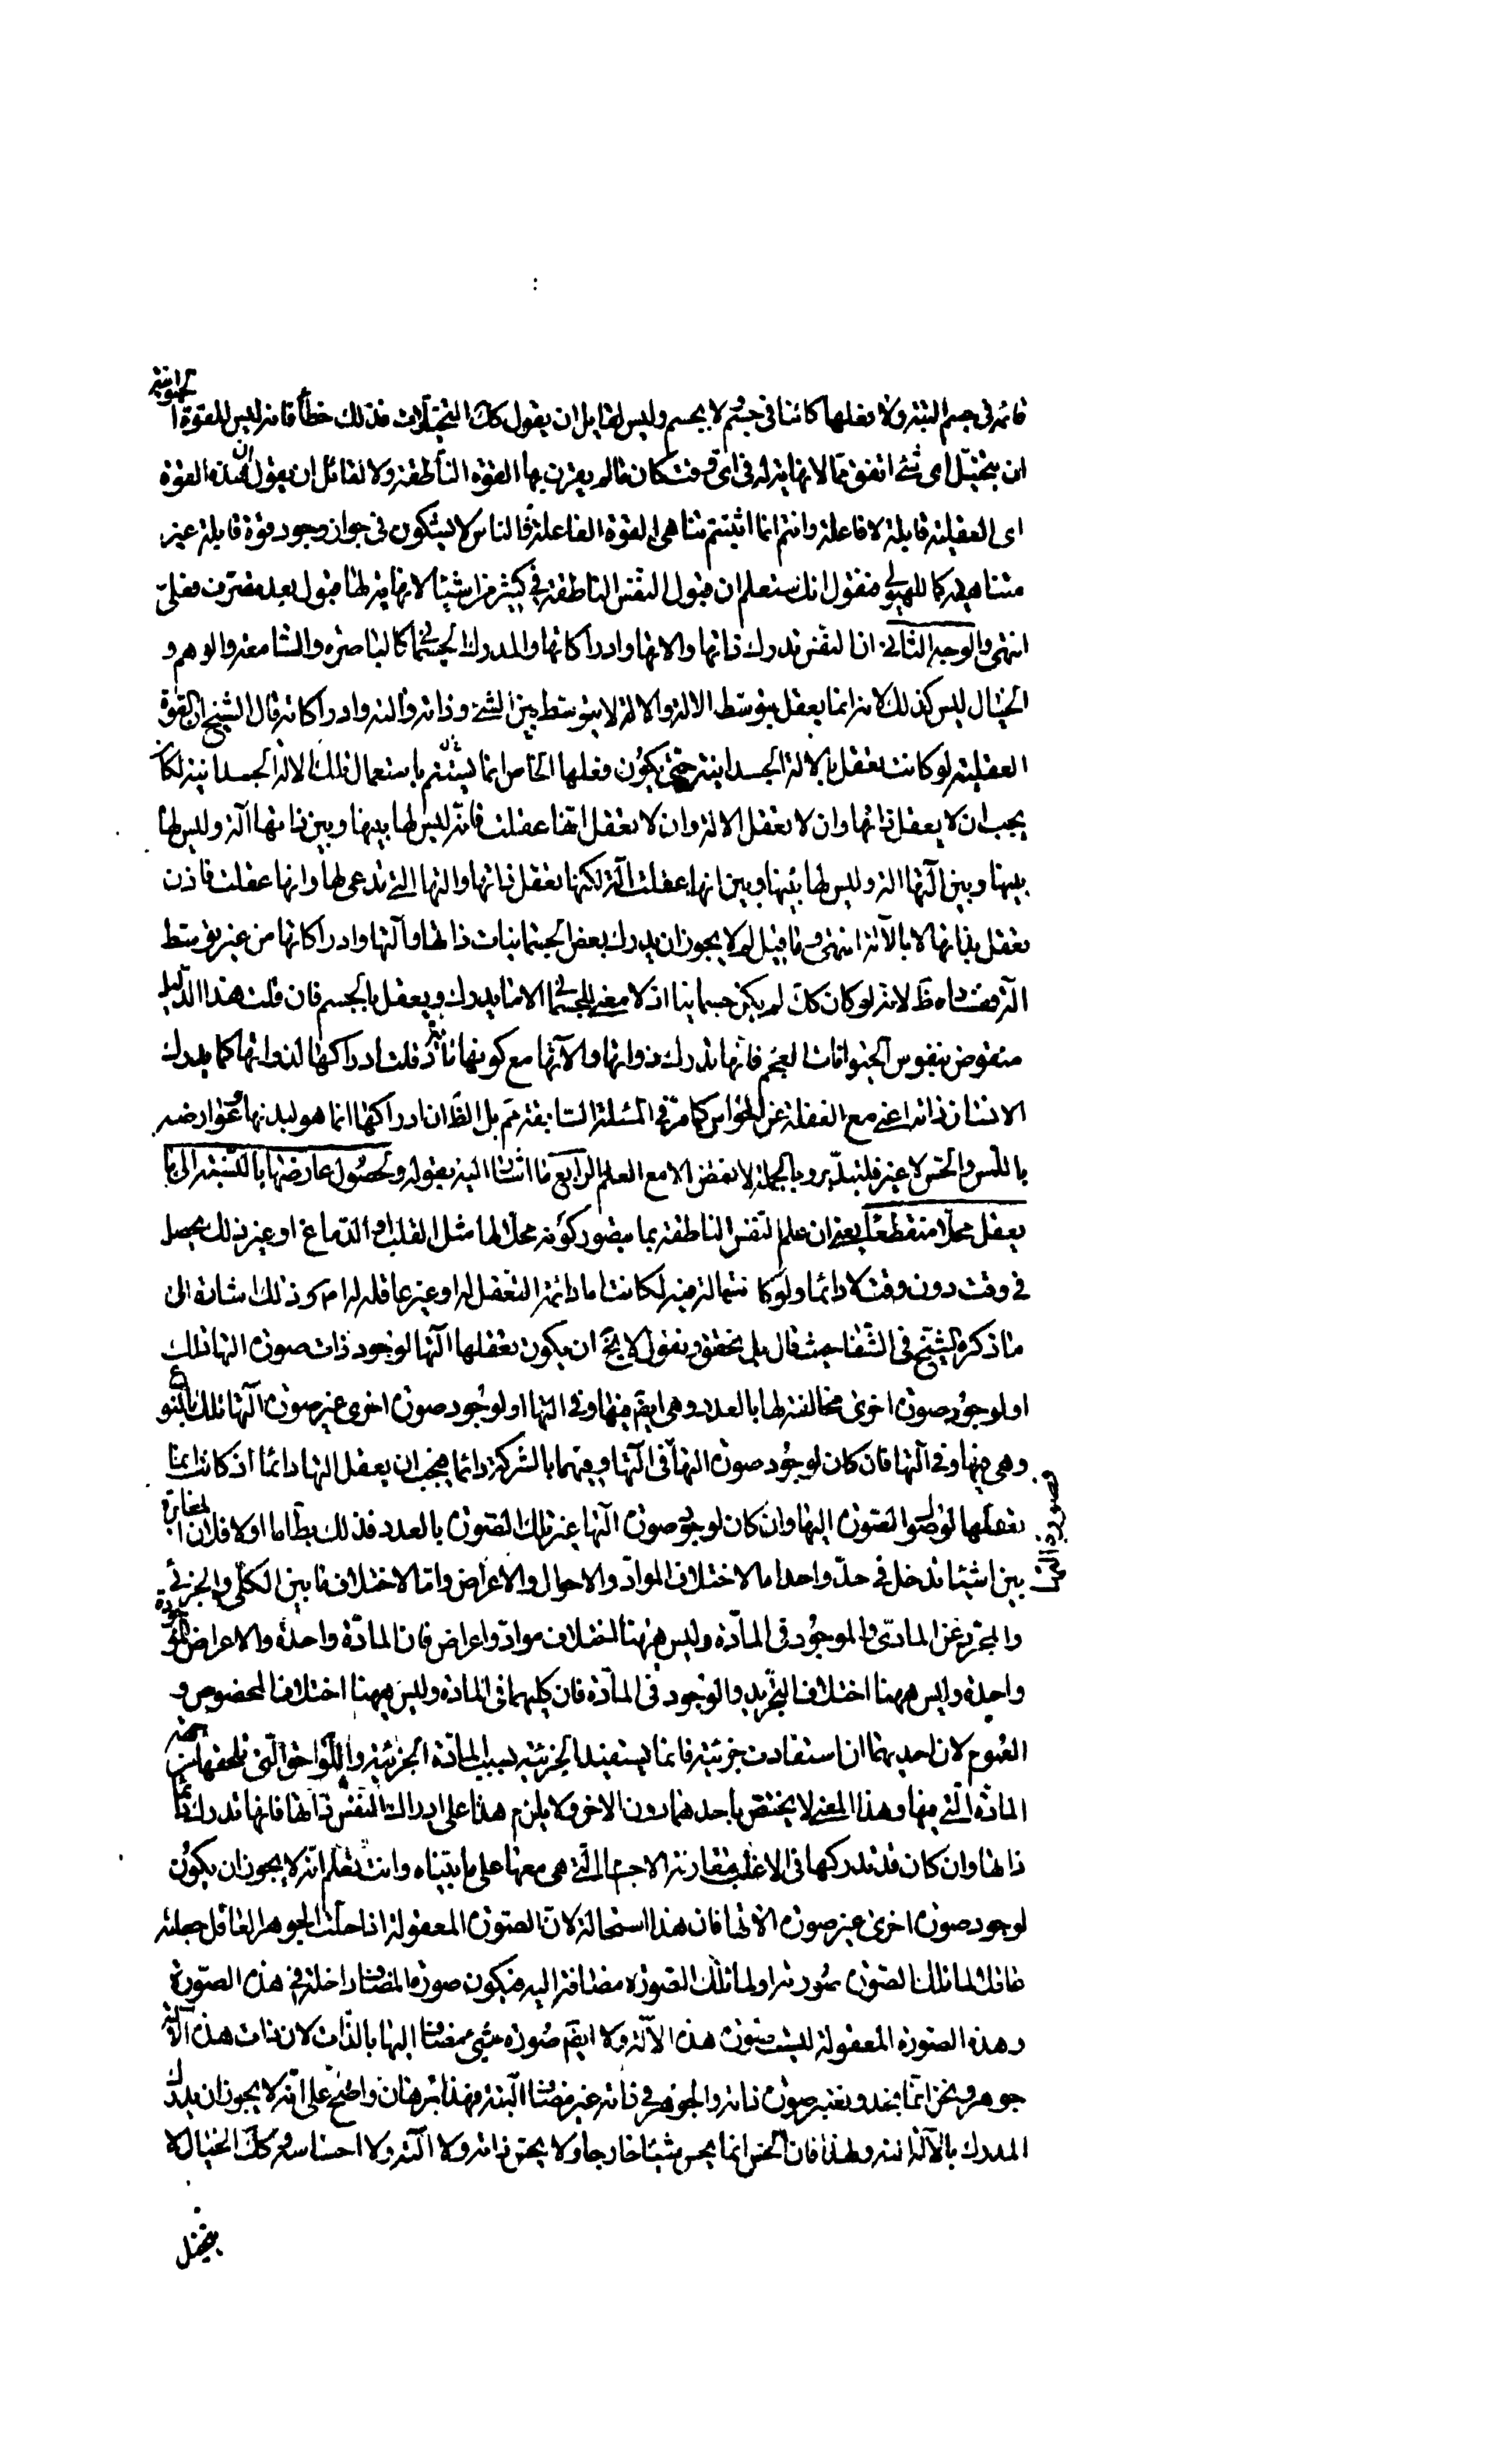 قائمة في جسم البتة ولا فعلها كائنا في جسم ولا بجسم وليس لقايل ان يقول كك التخيلات فذلك خطأ فانه ليس للقوة الحيوانية
ان يتخيل اى شئ اتفق مما لا نهاية له في اى وقت كان ما لم يقرن بها القوة الناطقة ولا لقائل ان يقول ان هذه القوة
اى العقلية قابلة لا فاعلة وانتم انما اثبتم تناهى القوة الفاعلة والناس لا يشكون في جواز وجود قوة قابلة غير
متناهية كما للهيولى فنقول انك ستعلم ان قبول النفس الناطقة في كثير من اشياء لا نهاية لها قبول بعد تصرف فعلى
انتهى والوجه الثانى ان النفس تدرك ذاتها والاتها وادراكاتها والمدرك الجسمانى كالباصرة والسامعة والوهم و
الخيال ليس كذلك لانه انما يعقل بتوسط الالة والالة لا يتوسط بين الشئ وذاته والته وادراكاته قال الشيخ ان القوة
العقلية لو كانت تعقل بالالة الجسدانية حتى يكون فعلها الخاص انما يستتم باستعمال تلك الالة الجسدانية لكان
يجب ان لا يعقل ذاتها وان لا تعقل الالة وان لا تعقل انها عقلت فانه ليس لها بينها وبين ذاتها آلة وليس لها
بينها وبين آلتها الة وليس لها بينها وبين انها عقلت آلة لكنها تعقل ذاتها والتها التى تدعى لها وانها عقلت فاذن
تعقل بذاتها لا بالآلة انتهى وما قيل لم لا يجوز ان يدرك بعض الجسمانيات ذاتها وآلتها وادراكاتها من غير توسط
آلة ففساده ظ لانه لو كان كك لم يكن جسمانيا اذ لا معنى للجسمانى الا ما يدرك ويعقل بالجسم فان قلت هذا الدليل
منقوض بنفوس الحيوانات العجم فانها تدرك ذواتها والآتها مع كونها مادية قلت ادراكها لذواتها كما يدرك
الانسان ذاته اعنى مع الغفلة عن الحواس كما مر في المسئلة السابقة مم بل الظ ان ادراكها انما هو لبدنها وعوارضه
باللمس والحس لا غير فليتدبر وبالجملة لا نقض الا مع العلم الرابع ما اشار اليه بقوله ولحصول عارضها بالنسبة الى ما
يعقل محلا منقطعا يعنى ان علم النفس الناطقة بما يتصور كونه محلا لها مثل القلب او الدماغ او غير ذلك يحصل
في وقت دون وقت لا دائما ولو كانت حالة فيه لكانت اما دائمة التعقل له او غير عاقلة له وذلك اشارة الى
ما ذكره الشيخ في الشفا حيث قال بل نحقق ونقول لا يخ ان يكون تعقلها آلتها لوجود ذات صورة التها تلك
او لوجود صورة اخرى مخالفة لها بالعدد وهى ايضا فيها وفي التها او لوجود صورة اخرى غير صورة آلتها تلك بالنوع
وهى فيها وفي آلتها فان كان لوجود صورة التها في آلتها وفيها بالشركة دائما فيجب ان يعقل التها دائما اذ كانت انما
تعقلها لوصول الصورة اليها وان كان لوجود صورة آلتها غير تلك الصورة بالعدد فذلك بط اما اولا فلان المغايرة
بين اشياء تدخل في حد واحد اما لاختلاف المواد والاحوال والاعراض واما لاختلاف ما بين الكلى والجزئى
والمجرد عن المادة والموجود في المادة وليس ههنا اختلاف مواد واعراض فان المادة واحدة والاعراض الموجودة
واحدة وليس ههنا اختلاف التجريد والوجود في المادة فان كليهما في المادة وليس ههنا اختلاف الخصوص و
العموم لان احديهما ان استفادت جزئية فانما يستفيد الجزئية بسبب المادة الجزئية واللواحق التى تلحقها من جهة
المادة التى فيها وهذا المعنى لا يختص باحدهما دون الاخر ولا يلزم هذا على ادراك النفس ذاتها فانها تدرك دائما
ذاتها وان كان قد تدركها في الاغلب مقارنة الاجسام التى هى معها على ما بيناه وانت تعلم انه لا يجوز ان يكون
لوجود صورة اخرى غير صورة الاتها فان هذا استحالة لان الصورة المعقولة اذا حلت الجوهر العاقل جعلته
عاقلا لما تلك الصورة صورته او لما تلك الصورة مضافة اليه فيكون صورة المضاف داخلة في هذه الصورة
وهذه الصورة المعقولة ليست صورة هذه الآلة ولا ايضا صورة شئ مضاف اليها بالذات لان ذات هذه الآلة
جوهر ونحن انما نجد ونعتبر صورة ذاته والجوهر في ذاته غير مضاف البتة فهذا برهان واضح على انه لا يجوز ان يدرك
المدرك بالآلة الته ولهذا فان الحس انما يحس شيئا خارجا ولا يحس ذاته ولا آلته ولا احساسه وكك الخيال لا
يتخيل